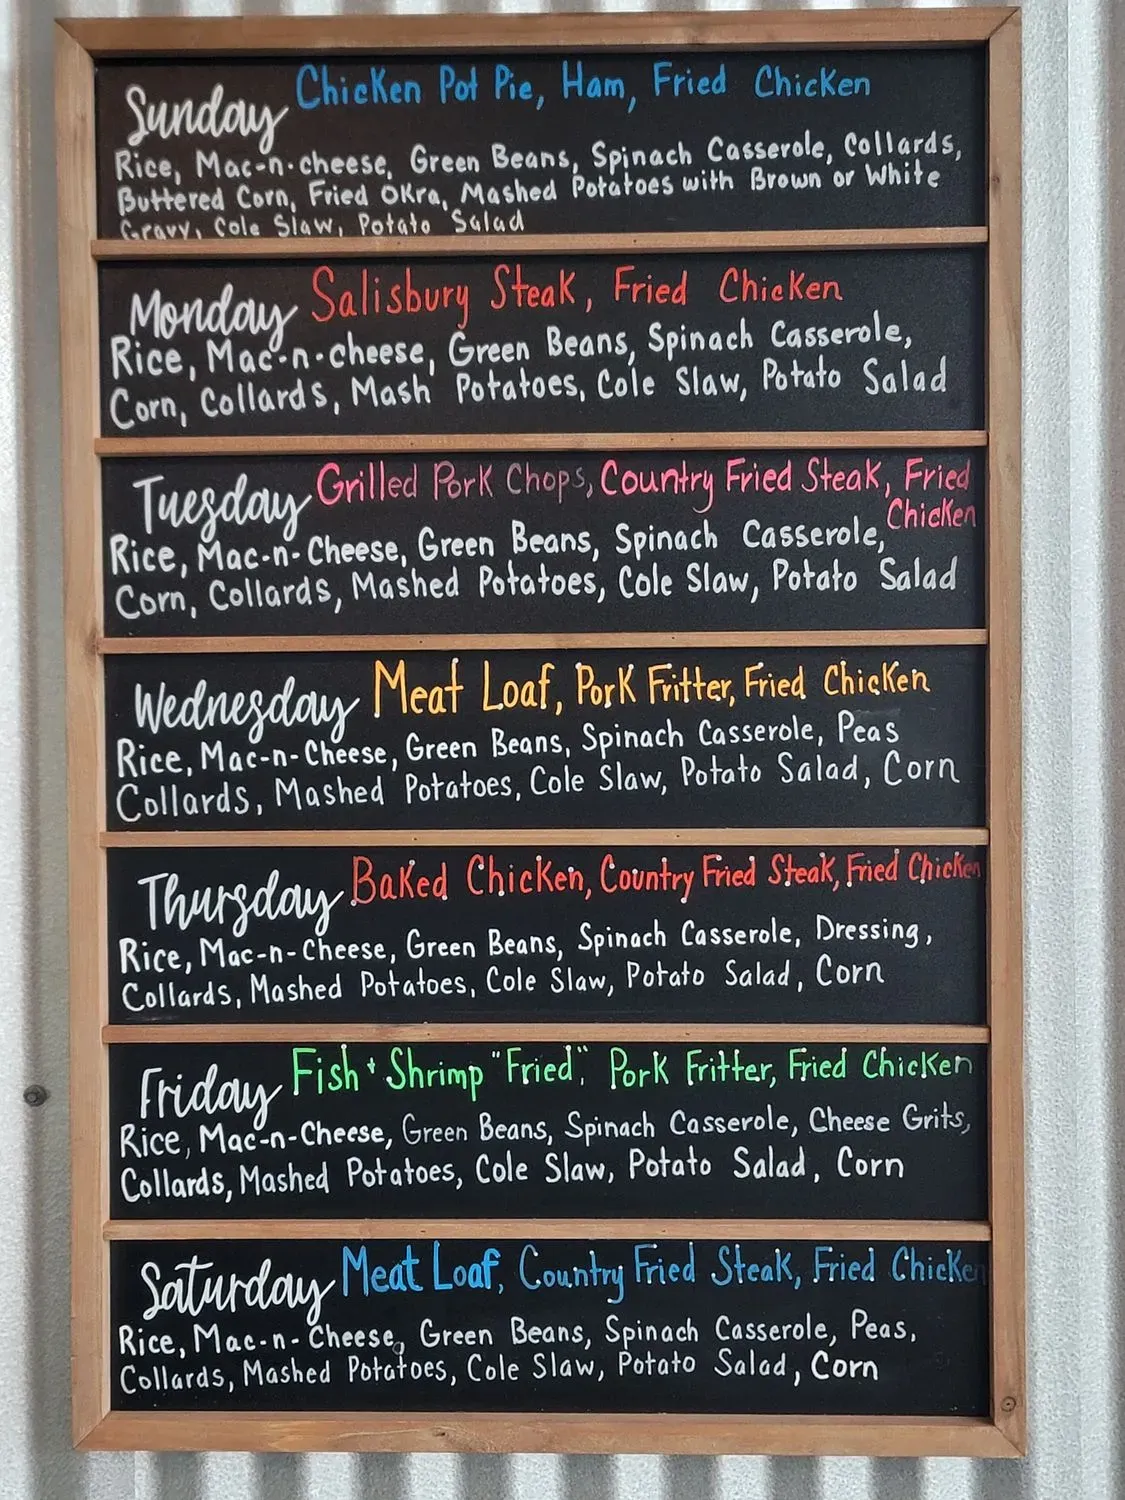 Sunday Chicken Pot Pie, Ham, Fried Chicken
Rice, Mac-n-cheese, Green Beans, Spinach Casserole, Collards,
Buttered Corn, Fried Okra, Mashed Potatoes with Brown or White
Gravy, Cole Slaw, Potato Salad
Monday Salisbury Steak, Fried Chicken
Rice, Mac-n-cheese, Green Beans, Spinach Casserole,
Corn, Collards, Mash Potatoes, Cole Slaw, Potato Salad
Tuesday Grilled Pork Chops, Country Fried Steak, Fried
Chicken
Rice, Mac-n-Cheese, Green Beans, Spinach Casserole,
Corn, Collards, Mashed Potatoes, Cole Slaw, Potato Salad
Wednesday Meat Loaf, Pork Fritter, Fried Chicken
Rice, Mac-n-Cheese, Green Beans, Spinach Casserole, Peas
Collards, Mashed Potatoes, Cole Slaw, Potato Salad, Corn
Thursday Baked Chicken, Country Fried Steak, Fried Chicken
Rice, Mac-n-Cheese, Green Beans, Spinach Casserole, Dressing,
Collards, Mashed Potatoes, Cole Slaw, Potato Salad, Corn
Friday Fish + Shrimp "Fried", Pork Fritter, Fried Chicken
Rice, Mac-n-Cheese, Green Beans, Spinach Casserole, Cheese Grits,
Collards, Mashed Potatoes, Cole Slaw, Potato Salad, Corn
Saturday Meat Loaf, Country Fried Steak, Fried Chicken
Rice, Mac-n-Cheese, Green Beans, Spinach Casserole, Peas,
Collards, Mashed Potatoes, Cole Slaw, Potato Salad, Corn